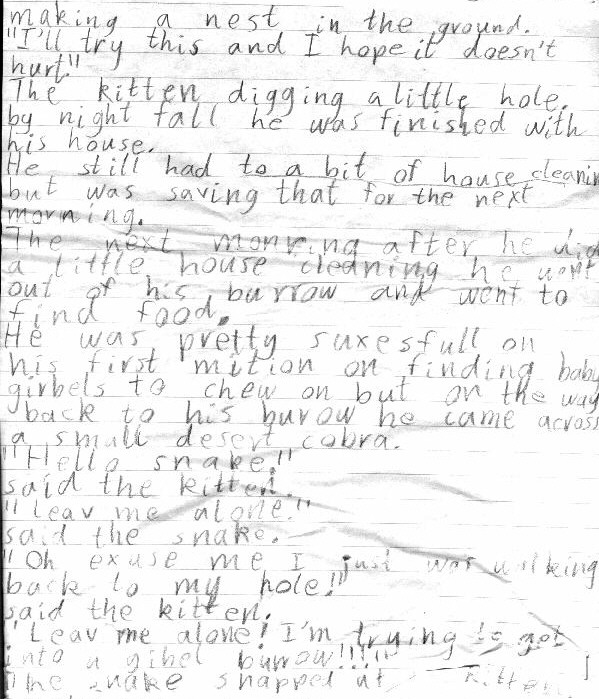 making a nest in the ground.
"I'll try this and I hope it doesn't
hurt!"
The kitten digging a little hole.
by night fall he was finished with
his house.
He still had to a bit of house cleanin
but was saving that for the next
morning.
The next monring after he did
a little house cleaning he went
out of his burrow and went to
find food.
He was pretty suxesfull on
his first mition on finding baby
girbels to chew on but on the way
back to his burow he came across
a small desert cobra.
"Hello snake!"
said the kitten.
"Leav me alone!"
said the snake.
"Oh exuse me I just was walking
back to my hole!"
said the kitten.
"Leav me alone! I'm trying to get
into a gibel burow!!!!"
The snake snapped at kitten